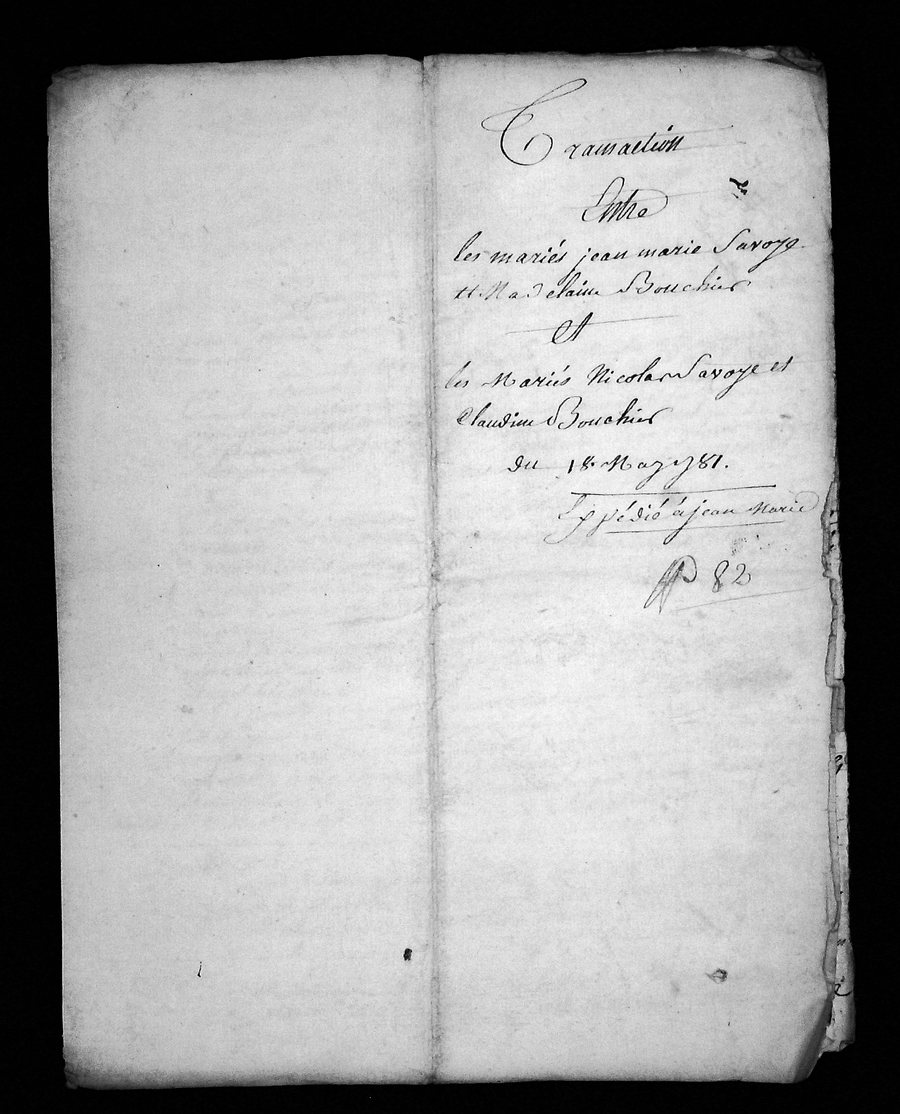 Transaction
Entre
les mariés jean marie Savoye
et Madelaine Bouchier
Et
les Mariés Nicolas Savoye et
Claudine Bouchier
du 18. May 1781.
Expédié à jean Marie
82